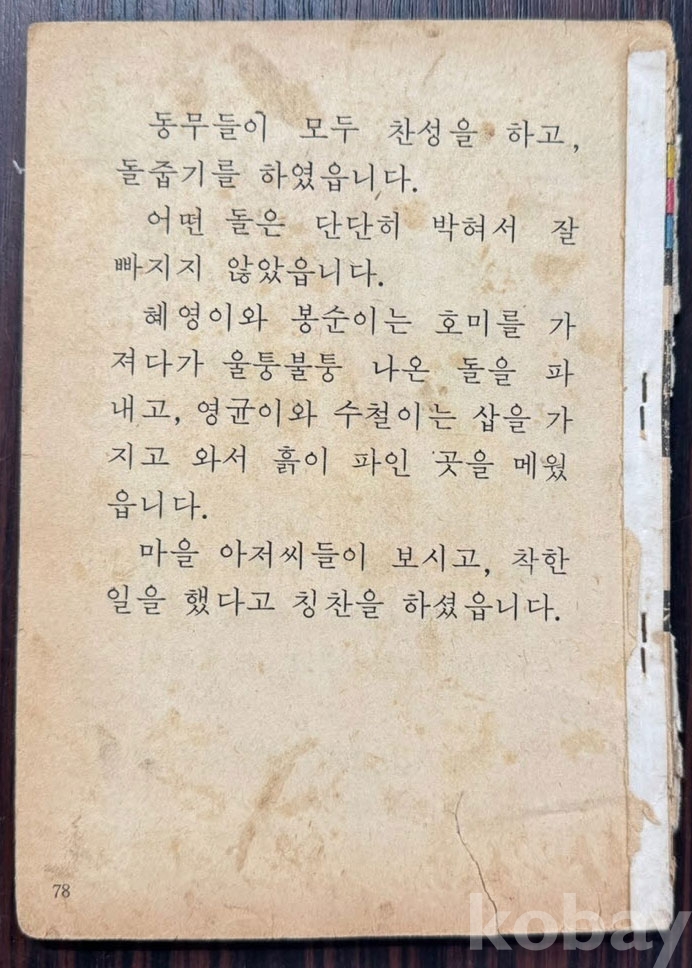 동무들이 모두 찬성을 하고,
돌줍기를 하였읍니다.
어떤 돌은 단단히 박혀서 잘
빠지지 않았읍니다.
혜영이와 봉순이는 호미를 가
져다가 울퉁불퉁 나온 돌을 파
내고, 영균이와 수철이는 삽을 가
지고 와서 흙이 파인 곳을 메웠
읍니다.
마을 아저씨들이 보시고, 착한
일을 했다고 칭찬을 하셨읍니다.
78
kobay